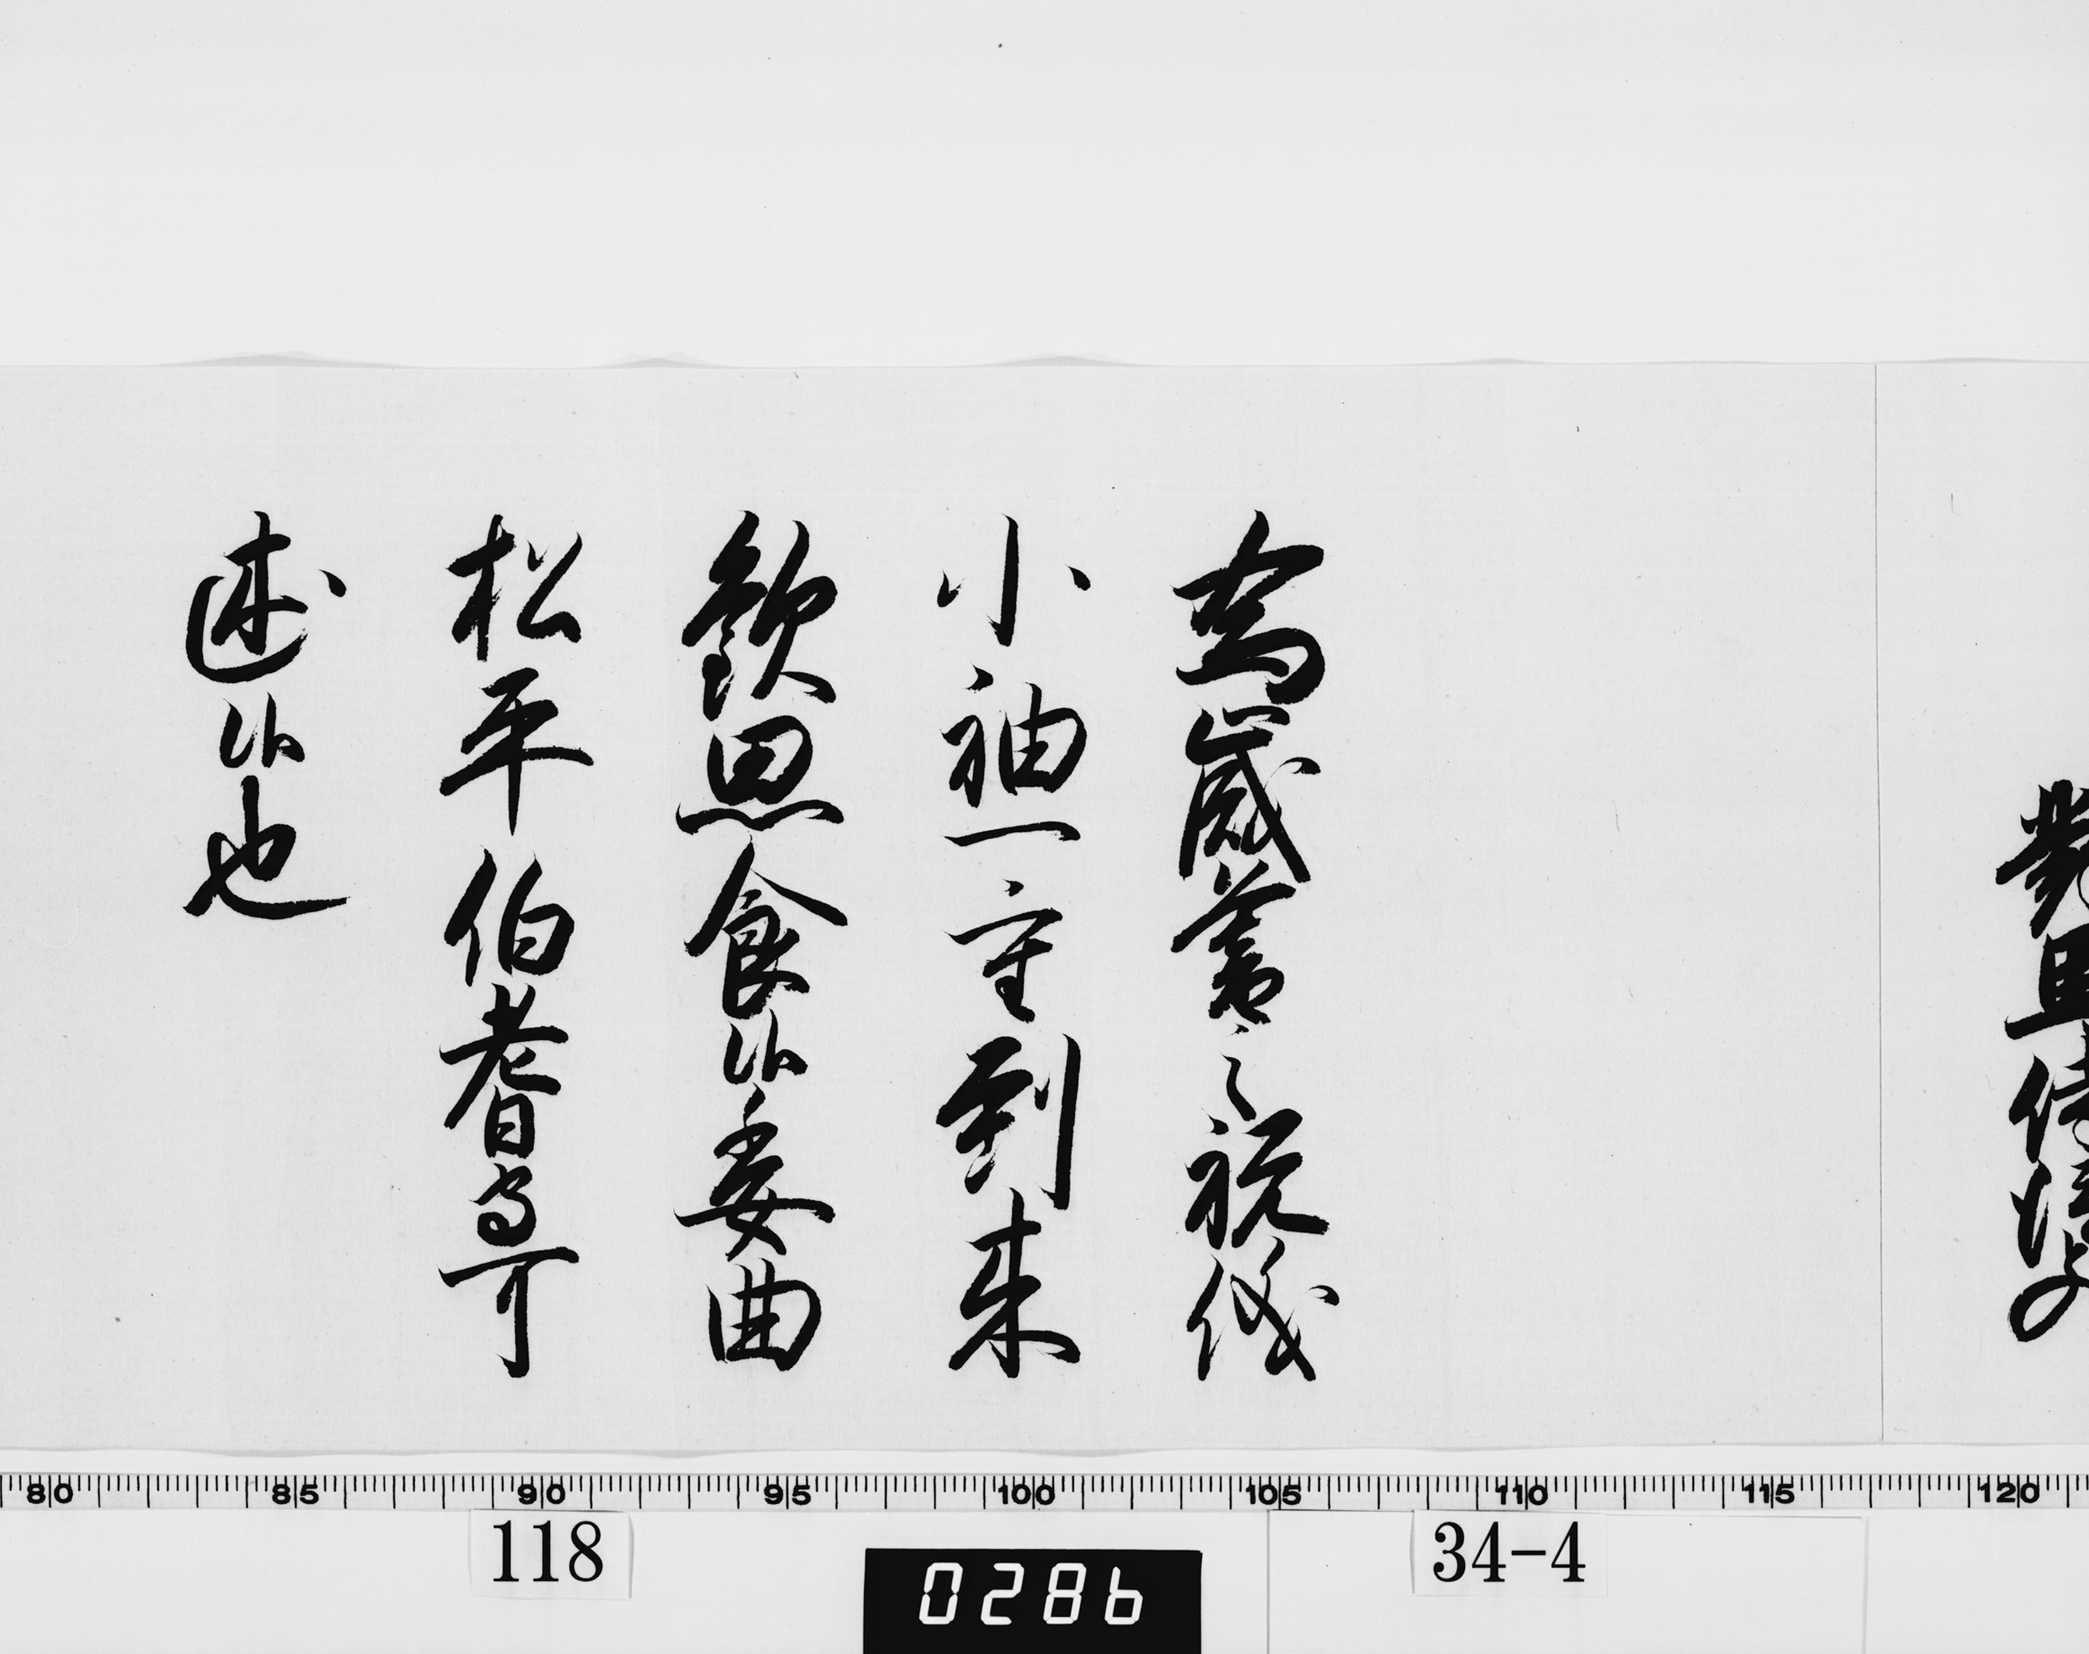 為歳暮之祝儀
小袖一重到来
歓思食候委曲
松平伯耆守可
述候也
80 85 90 95 100 105 110 115 120
118
0286
34-4